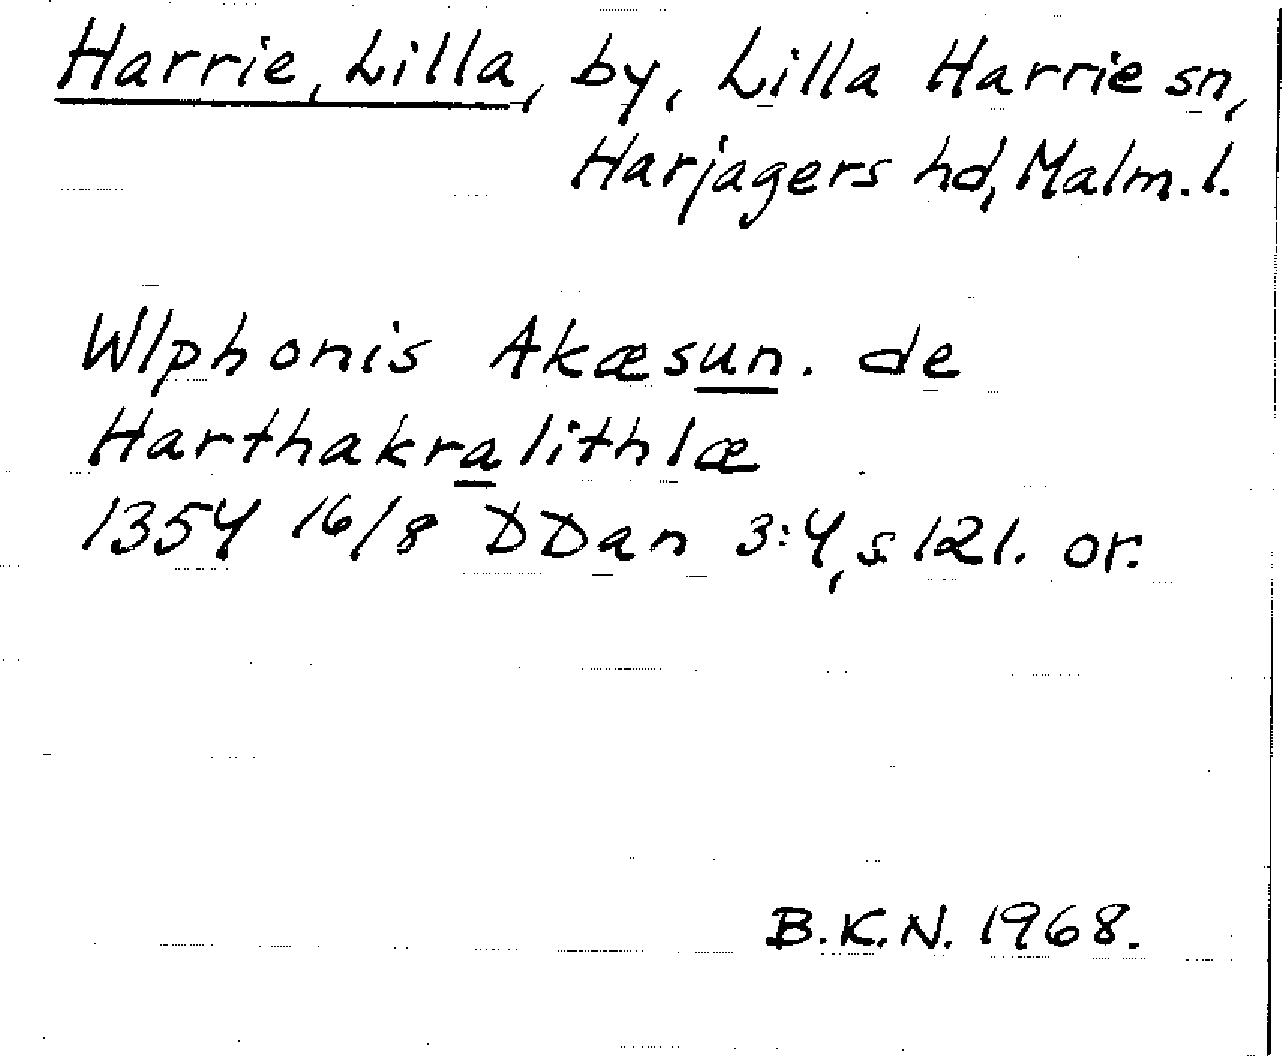 Harrie, Lilla, by, Lilla Harrie sn,
Harjagers hd, Malm. l.
Wlphonis Akæsun. de
Harthakralithlæ
1354 16/8 DDan 3:4, s 121. or.
B.K.N. 1968.